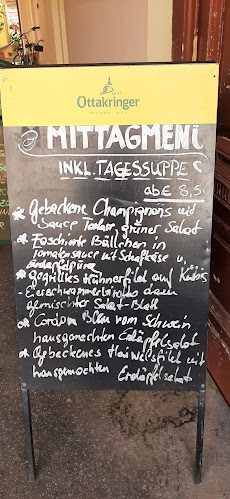 Ottakringer
MITTAGMENÜ
INKL. TAGESSUPPE
ab € 8,5
* Gebackene Champignons mit
Sauce Tartar, grüner Salat
* Faschierte Bällchen in
Tomatensauce mit Schafkäse u.
Erdäpfelpüree
* gegrilltes Hühnerfilet auf Kürbis
Eierschwammerlrisotto dazu
gemischter Salat-Blatt
* Cordon Bleu vom Schwein
hausgemachten Erdäpfelsalat
* Gebackenes Haiwelsfilet mit
hausgemachten Erdäpfelsalat